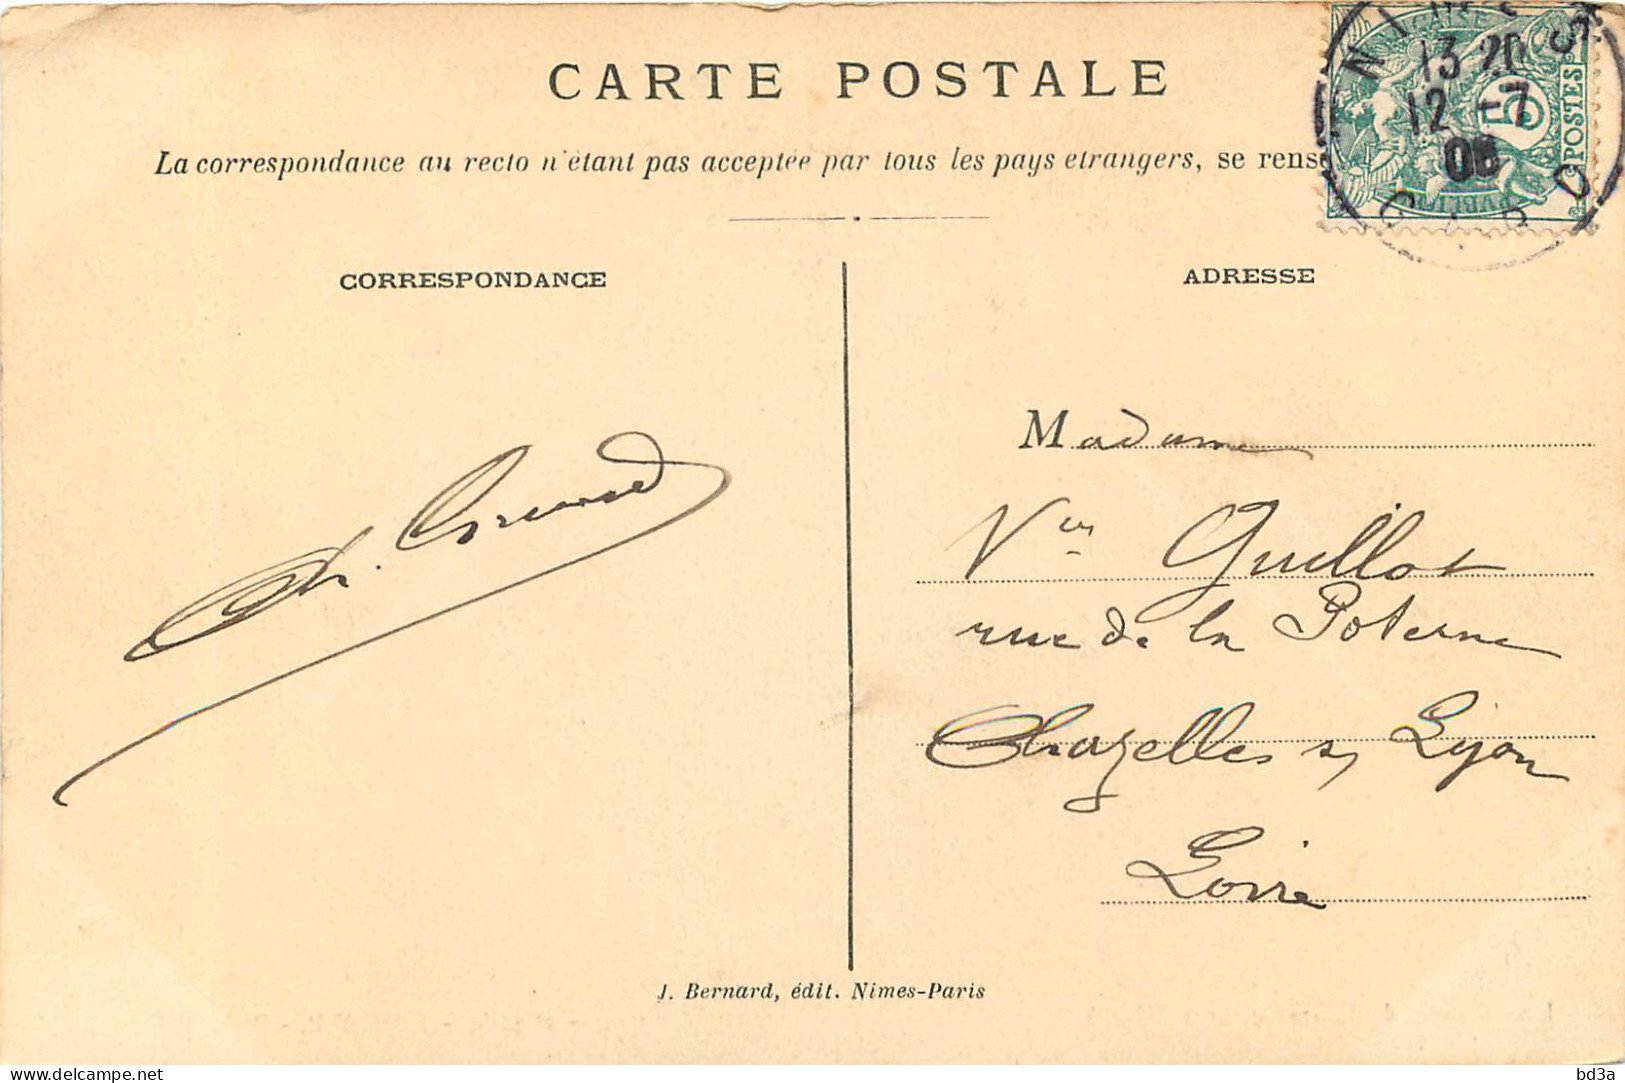 CARTE POSTALE
La correspondance au recto n'étant pas acceptée par tous les pays etrangers, se rens
NIMES
13 20
12 -7
08
GARD
5
POSTES
CORRESPONDANCE
ADRESSE
Madame
Vve Guillot
rue de la Poterne
Chazelles s/ Lyon
Loire
J. Bernard, édit. Nimes-Paris
bd3a
www.delcampe.net